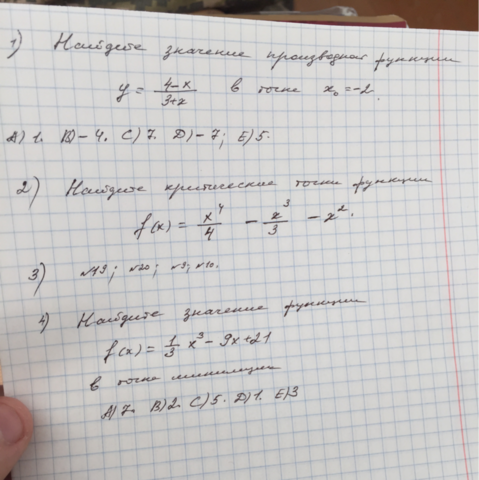 1) Найдите значение производной функции
y = \frac{4-x}{3+x} в точке x₀ = -2.
A) 1. B) - 4. C) 7. D) - 7; E) 5.
2) Найдите критические точки функции
f(x) = \frac{x^4}{4} - \frac{x^3}{3} - x².
3) №19; №20; №9; №10.
4) Найдите значение функции
f(x) = \frac{1}{3} x³ - 9x + 21
в точке минимума
A) 7. B) 2. C) 5. D) 1. E) 3